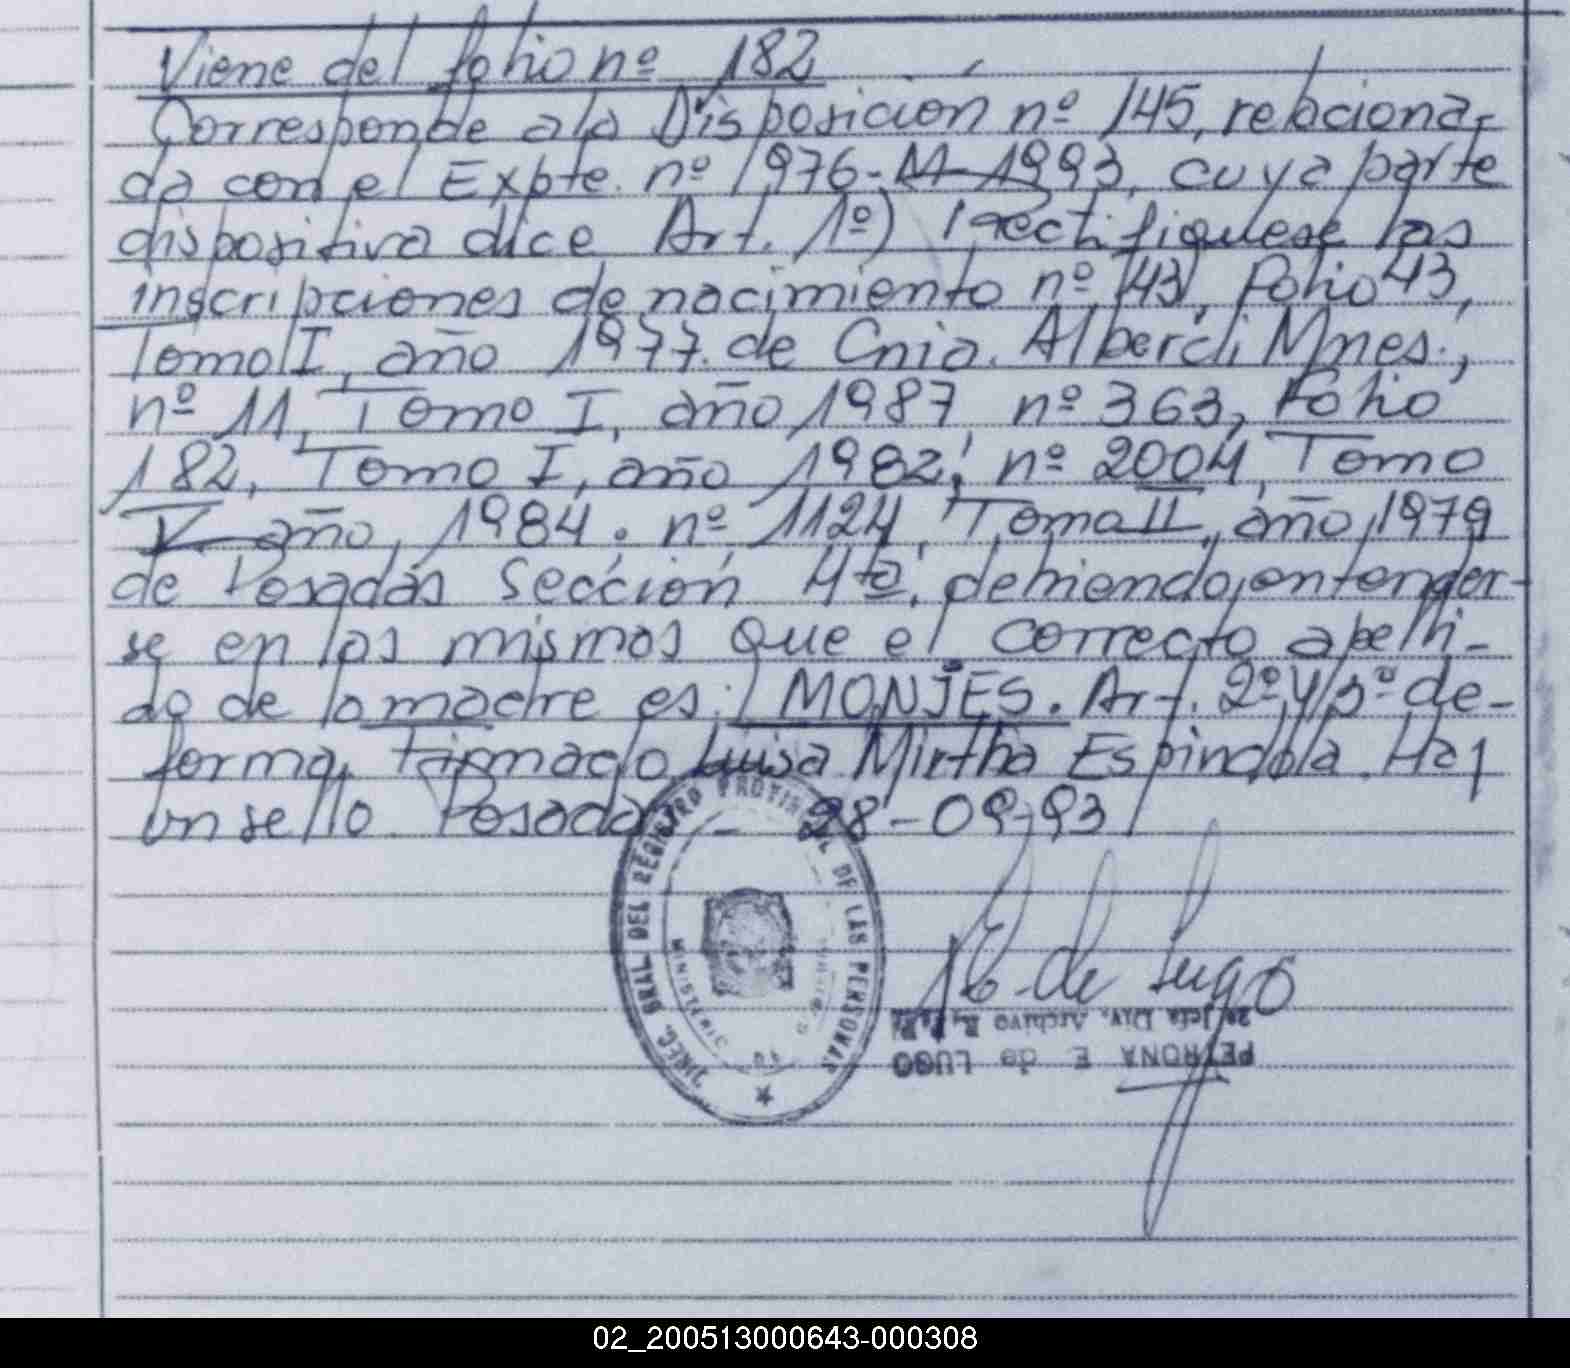 Viene del folio nº 182
Corresponde a la Disposición nº 145, relaciona-
da con el Expte. nº 1976-M-1993, cuya parte
dispositiva dice Art. 1º) Rectifiquese las
inscripciones de nacimiento nº 143, Folio 43,
Tomo I, año 1977. de Cnia. Alberdi Mnes.,
nº 11, Tomo I, año 1987 nº 363, Folio
182, Tomo I, año 1982, nº 2004, Tomo
V año, 1984. nº 1124, Tomo II, año 1979
de Posadas Sección 4ta. debiendo entender-
se en los mismos que el correcto apelli-
do de la madre es: MONJES. Art. 2º y 3º de-
forma. Firmado Luisa Mirtha Espindola. Hay
un sello. Posadas - 28-09-93
DIREC. GRAL DEL REGISTRO PROVINCIAL DE LAS PERSONAS
MINISTERIO
E. de Lugo
PETRONA E. de LUGO
2º Jefa Div. Archivo R. P. P.
02_200513000643-000308